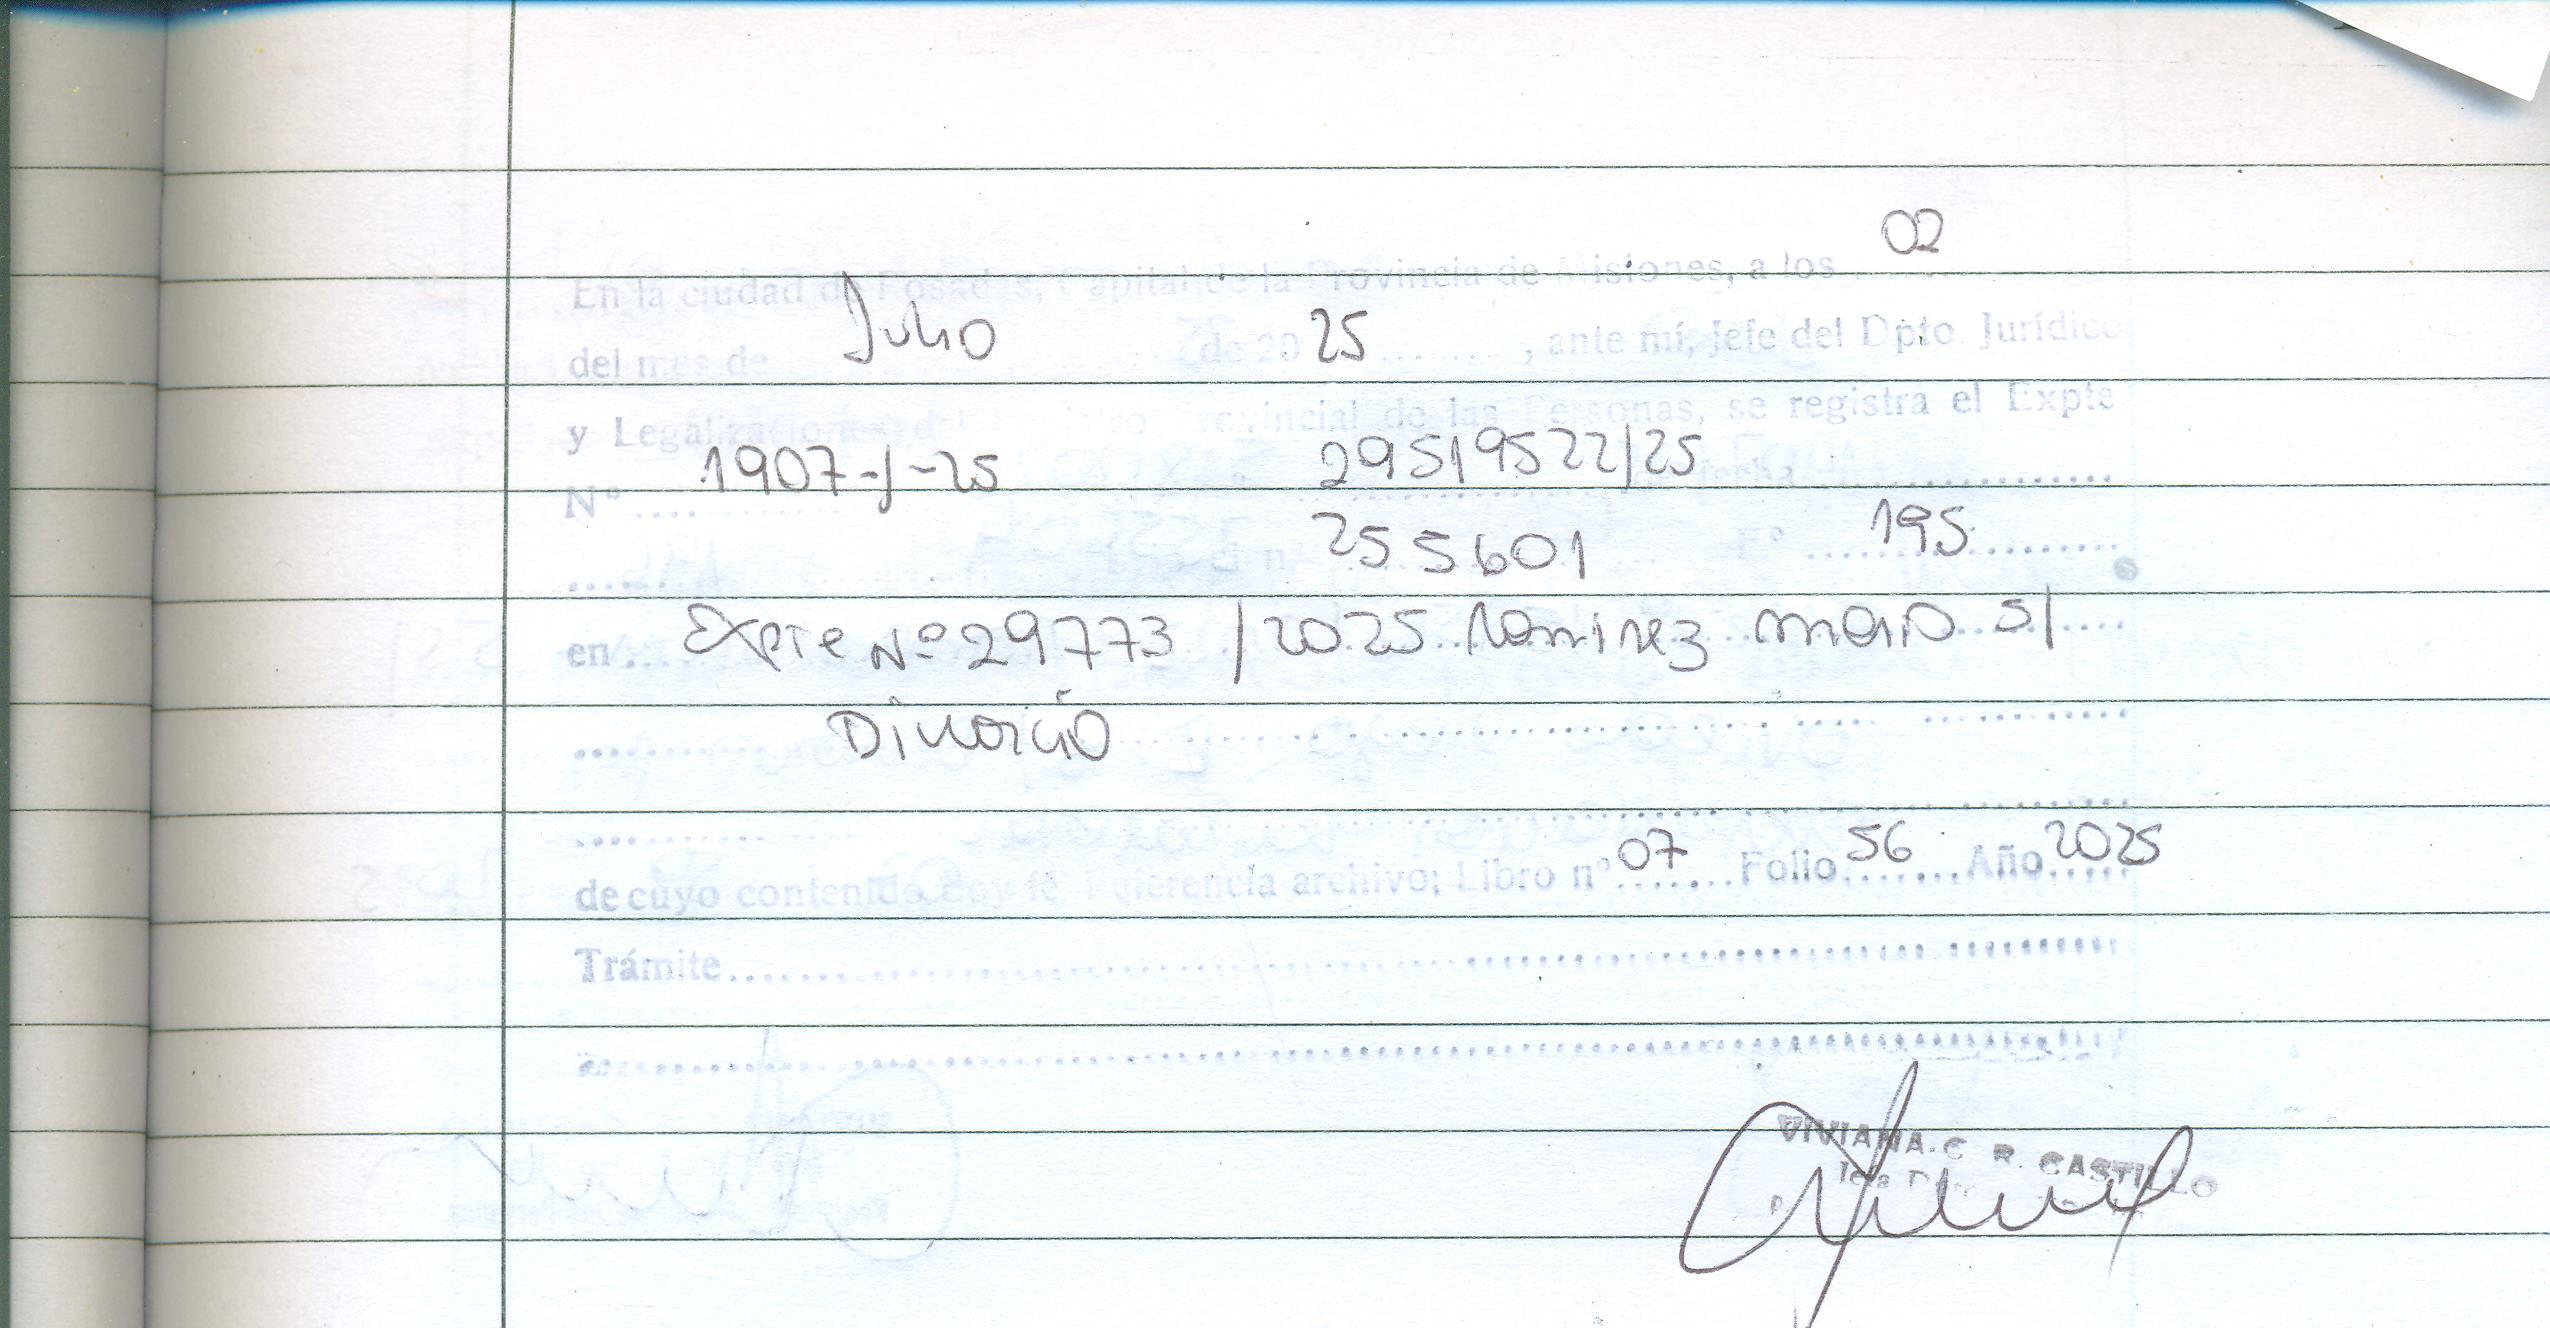 02
En la ciudad de Posadas, Capital de la Provincia de Misiones, a los ........
Julio 25
del mes de de 20 ........ , ante mí, Jefe del Dpto. Jurídico
y Legalizaciones del Registro Provincial de las Personas, se registra el Expte
1907-J-25 29519522/25
Nº .... fecha ................
255601 Fº 195
en ... Expte Nº 29773 /2025 Ramirez Mario s/
Divorcio
de cuyo contenido doy fé Referencia archivo; Libro nº 07 Folio 56 Año 2025
Trámite................
VIVIANA. C R. CASTILLO